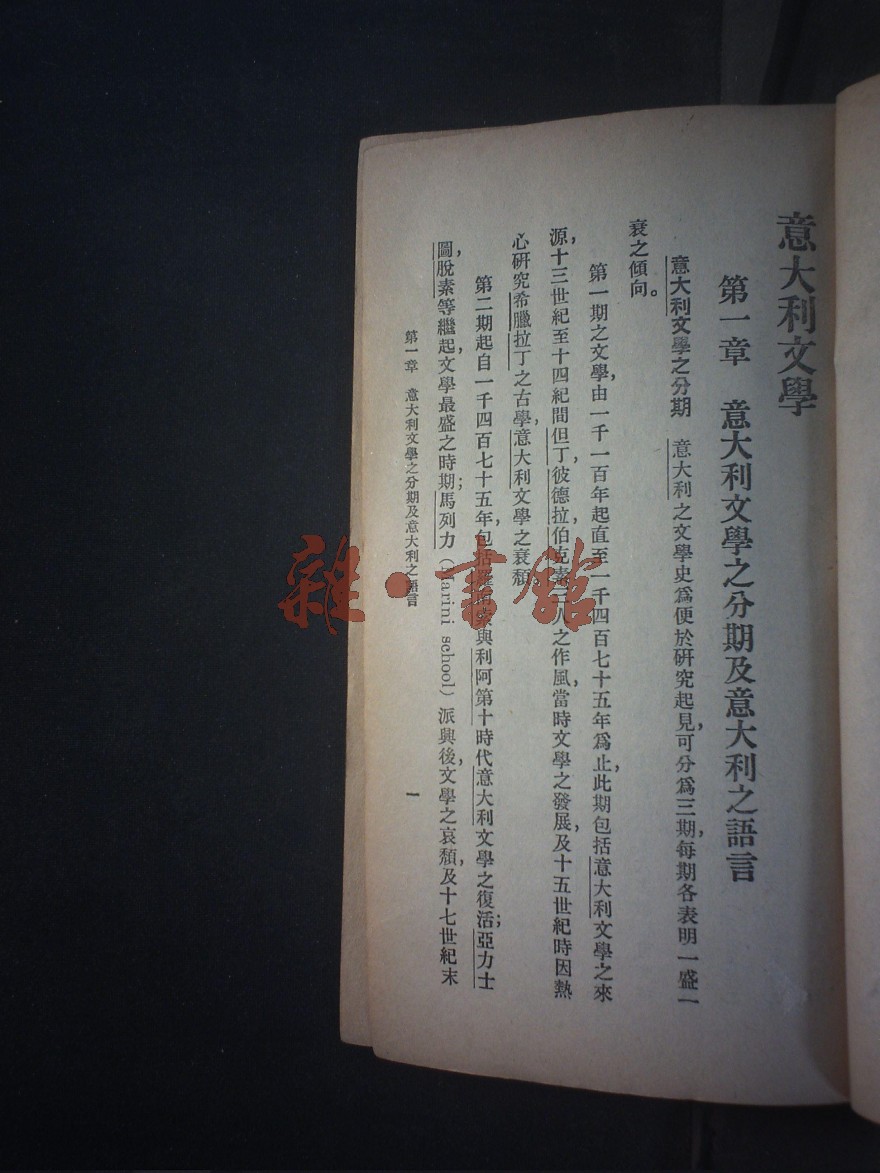 意大利文學
第一章　意大利文學之分期及意大利之語言
意大利文學之分期　意大利之文學史爲便於研究起見，可分爲三期，每期各表明一盛一
衰之傾向。
第一期之文學，由一千一百年起直至一千四百七十五年爲止，此期包括意大利文學之來
源，十三世紀至十四紀間但丁，彼德拉，伯克素三人之作風，當時文學之發展，及十五世紀時因熱
心研究希臘拉丁之古學，意大利文學之衰頹。
第二期起自一千四百七十五年，包括羅素與利阿第十時代意大利文學之復活；亞力士
圖，脫素等繼起，文學最盛之時期；馬列力（Marini school）派興後，文學之哀頹，及十七世紀末
第一章　意大利文學之分期及意大利之語言
一
雜·書館